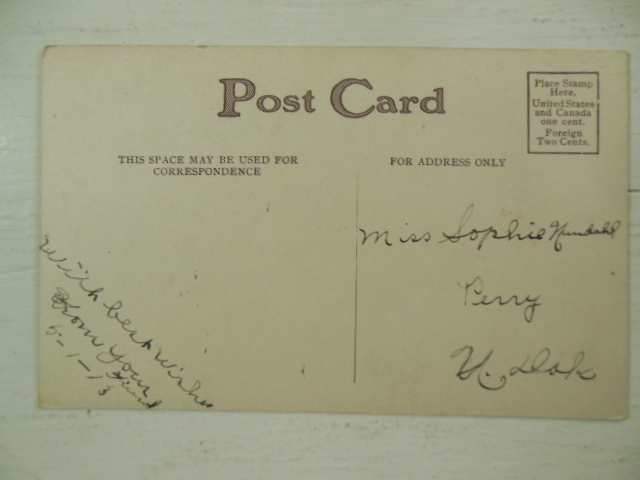 Post Card
Place Stamp
Here.
United States
and Canada
one cent.
Foreign
Two Cents.
THIS SPACE MAY BE USED FOR
CORRESPONDENCE
FOR ADDRESS ONLY
With best wishes
From your
friend
6-1-13
Miss Sophie
Perry
N. Dak